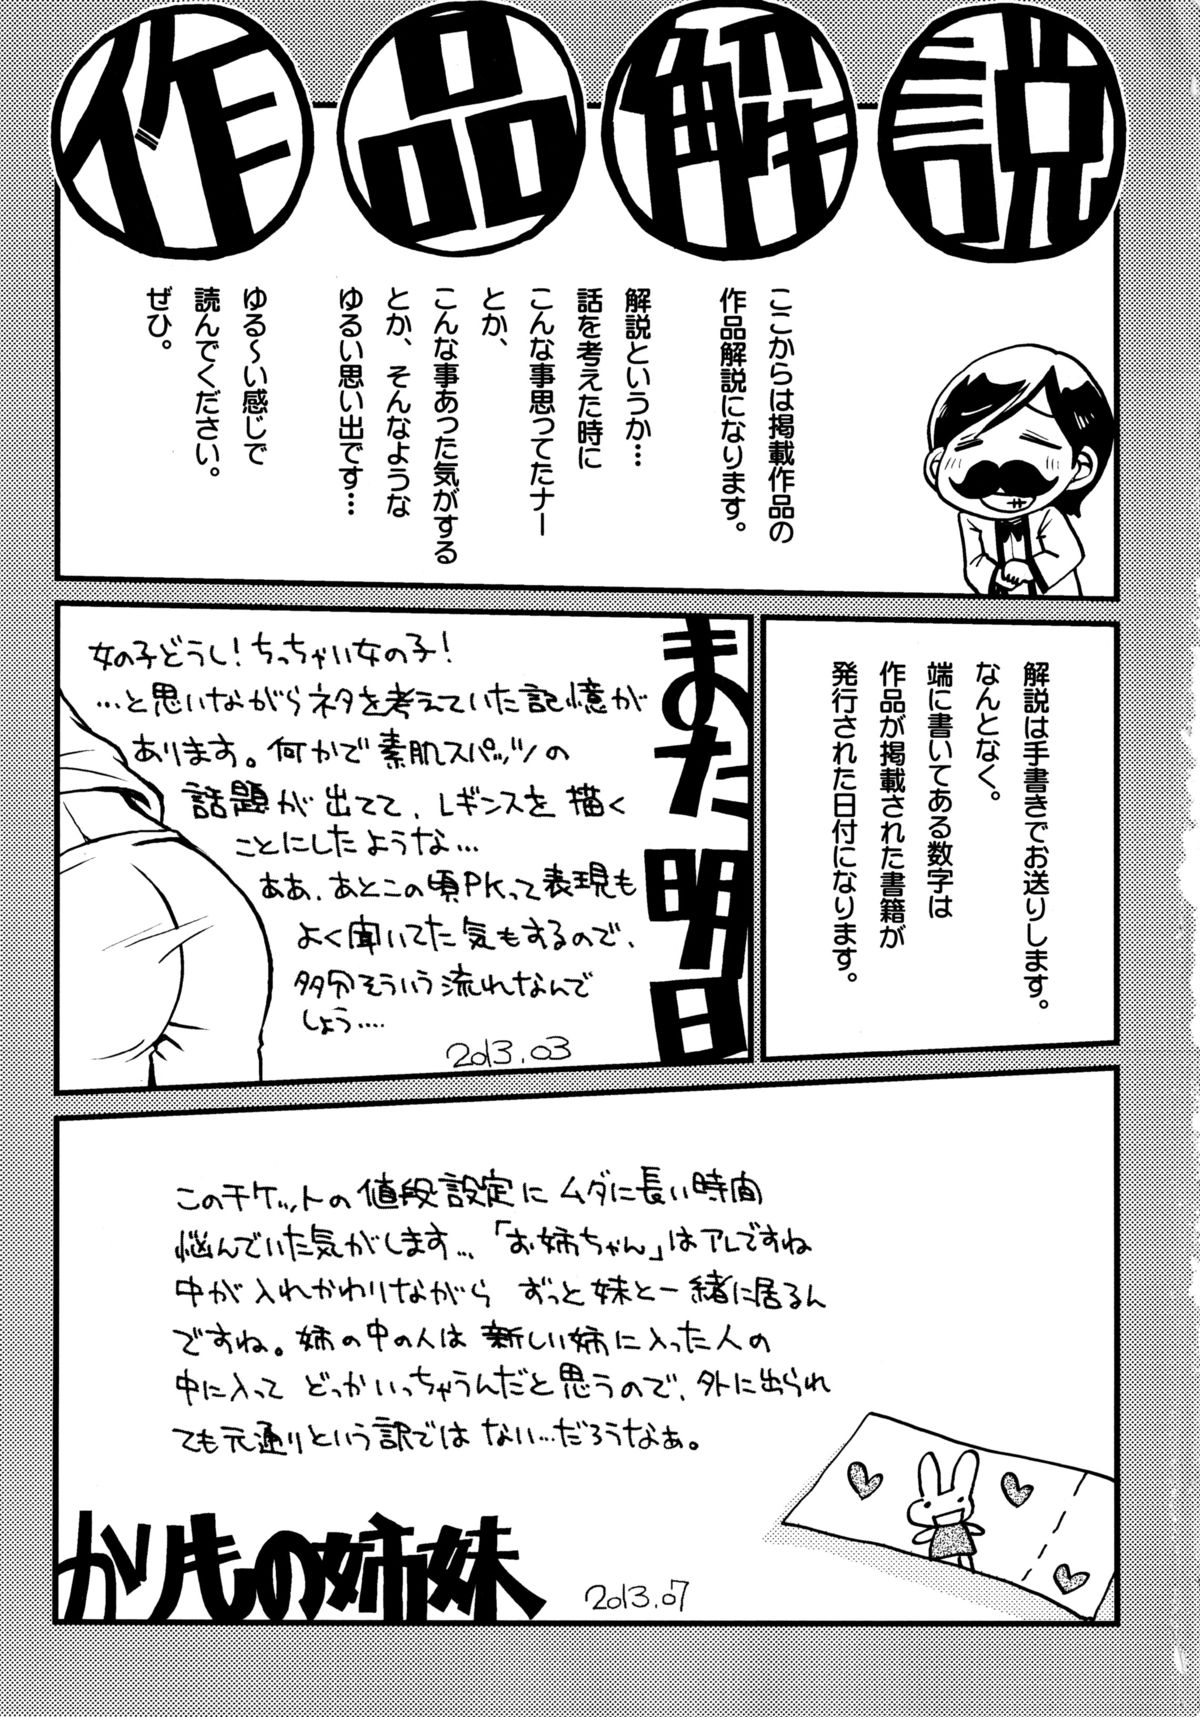 作品解説
ここからは掲載作品の
作品解説になります。
解説というか…
話を考えた時に
こんな事思ってたナー
とか、
こんな事あった気がする
とか、そんなような
ゆるい思い出です…
ゆる～い感じで
読んでください。
ぜひ。
解説は手書きでお送りします。
なんとなく。
端に書いてある数字は
作品が掲載された書籍が
発行された日付になります。
また明日
女の子どうし！ちっちゃい女の子！
…と思いながらネタを考えていた記憶が
あります。何かで素肌スパッツの
話題が出てて、レギンスを描く
ことにしたような…
ああ、あとこの頃PKって表現も
よく聞いてた気もするので、
多分そういう流れなんで
しょう…．
2013.03
このチケットの値段設定にムダに長い時間
悩んでいた気がします…、「お姉ちゃん」はアレですね
中が入れかわりながら ずっと妹と一緒に居るん
ですね。姉の中の人は新しい姉に入った人の
中に入って どっかいっちゃうんだと思うので、外に出られ
ても元通りという訳では ない…だろうなぁ。
かりもの姉妹
2013.07